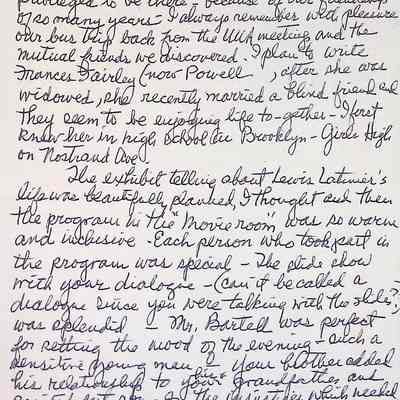 privileged to be there - because of our friendship
of so many years - I always remember with pleasure
our bus trip back from the UUA meeting and the
mutual friends we discovered. I plan to write
Frances Fairley (now Powell , after she was
widowed, she recently married a blind friend and
they seem to be enjoying life to-gether - I first
knew her in high school in Brooklyn - Girls High
on Nostrand Ave.
The exhibit telling about Lewis Latimer's
life was beautifully planned, I thought and then
the program in the "Movie room" was so warm
and inclusive - Each person who took part in
the program was special - The slide show
with your dialogue - (can it be called a
dialogue since you were talking with the slides?)
was splendid - Mr. Bartell was perfect
for setting the mood of the evening - such a
sensitive young man - Your brother added
his relationship to your grandfather, and
which needed